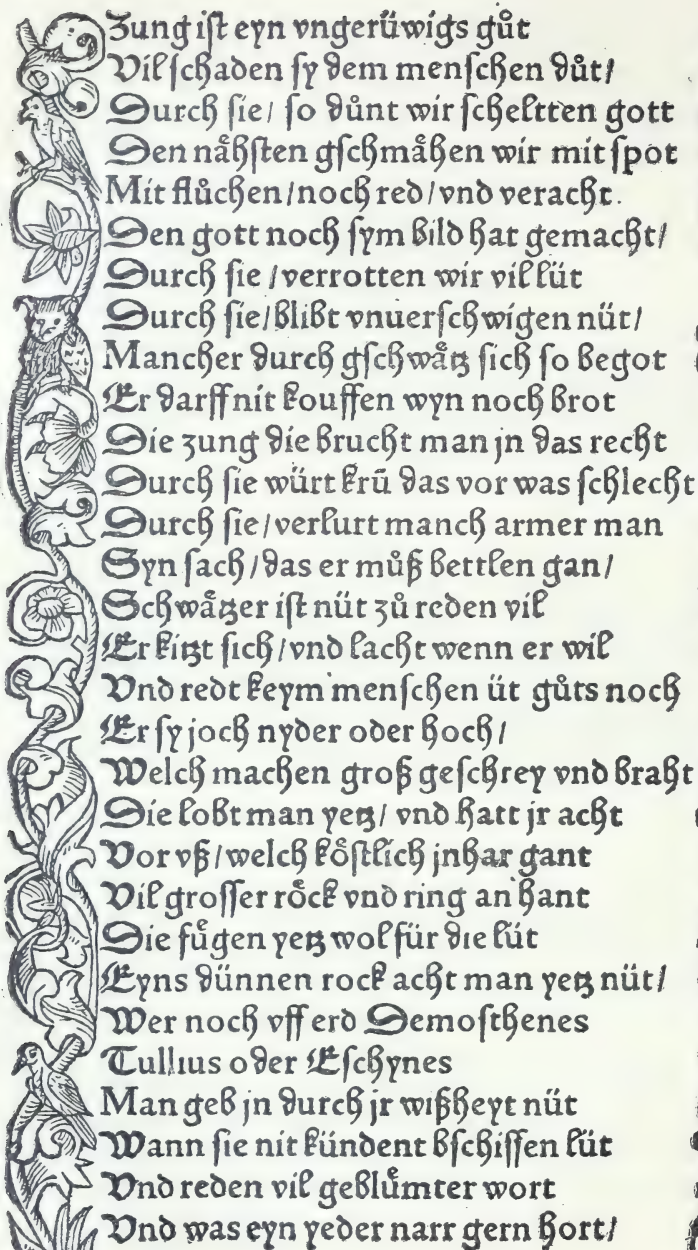 Zung iſt eyn vngerüwigs gůt
Vil ſchaden ſy dem menſchen důt/
Durch ſie/ ſo důnt wir ſcheltten gott
Den nåhſten gſchmåhen wir mit ſpot
Mit flůchen/noch red/vnd veracht.
Den gott noch ſym bild hat gemacht/
Durch ſie /verrotten wir vil lüt
Durch ſie/blibt vnuerſchwigen nüt/
Mancher durch gſchwåtz ſich ſo begot
Er darff nit kouffen wyn noch brot
Die zung die brucht man jn das recht
Durch ſie würt krū das vor was ſchlecht
Durch ſie/verlurt manch armer man
Syn ſach/das er můß bettlen gan/
Schwåtzer iſt nüt zů reden vil
Er kitzt ſich/vnd lacht wenn er wil
Vnd redt keym menſchen üt gůts noch
Er ſy joch nyder oder hoch/
Welch machen groß geſchrey vnd braht
Die lobt man yetz/ vnd hatt jr acht
Vor vß/welch köſtlich jnhar gant
Vil groſſer röck vnd ring an hant
Die fůgen yetz wol für die lüt
Eyns dünnen rock acht man yetz nüt/
Wer noch vff erd Demoſthenes
Tullius oder Eſchynes
Man geb jn durch jr wißheyt nüt
Wann ſie nit kündent bſchiſſen lüt
Vnd reden vil geblůmter wort
Vnd was eyn yeder narr gern hort/